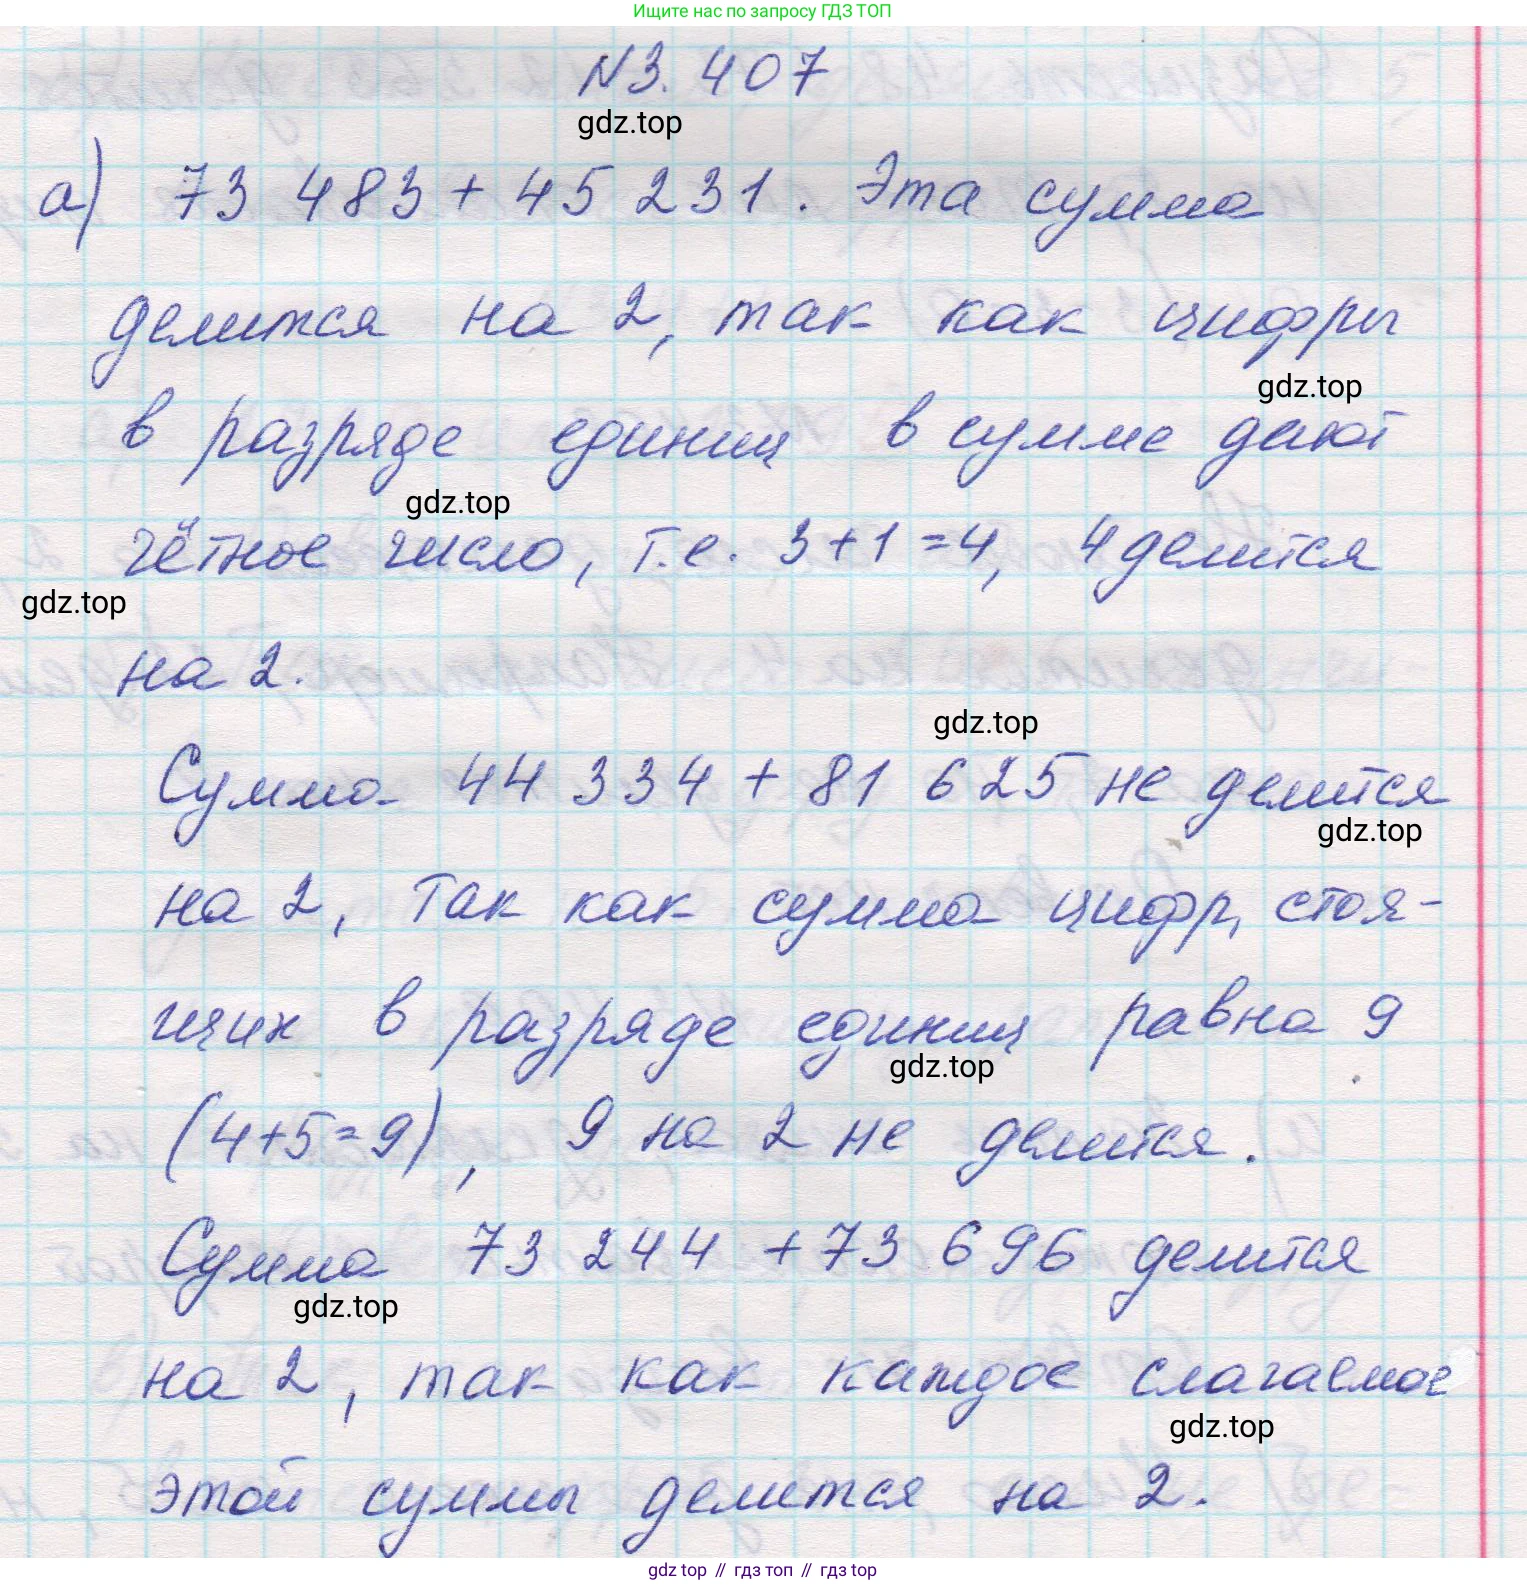 Ищите нас по запросу ГДЗ ТОП
N3. 407
gdz.top
а) 73 483 + 45 231. Эта сумма
делится на 2, так как цифры
gdz.top
в разряде единиц в сумме дают
gdz.top
чётное число, т.е. 3+1=4, 4 делится
gdz.top
на 2.
gdz.top
Сумма 44 334 + 81 625 не делится
gdz.top
на 2, так как сумма цифр, стоя-
щих в разряде единиц равна 9
gdz.top
(4+5=9), 9 на 2 не делится.
Сумма 73 244 + 73 696 делится
gdz.top
на 2, так как каждое слагаемое
gdz.top
этой суммы делится на 2.
gdz.top // гдз топ // gdz.top